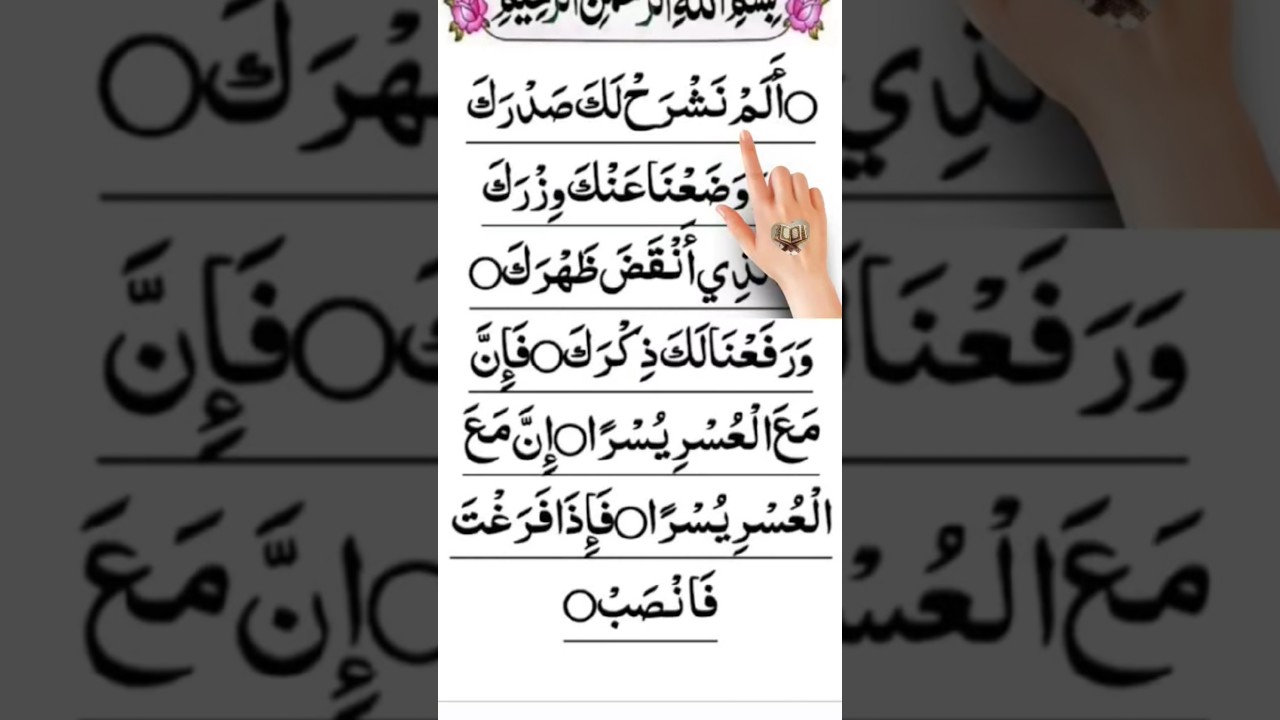 بِسْمِ اللهِ الرَّحْمٰنِ الرَّحِيْمِ
○أَلَمْ نَشْرَحْ لَكَ صَدْرَكَ
وَضَعْنَا عَنْكَ وِزْرَكَ
أَنْقَضَ ظَهْرَكَ○
وَرَفَعْنَا لَكَ ذِكْرَكَ○فَإِنَّ
مَعَ الْعُسْرِ يُسْرًا○إِنَّ مَعَ
الْعُسْرِ يُسْرًا○فَإِذَا فَرَغْتَ
فَانْصَبْ○